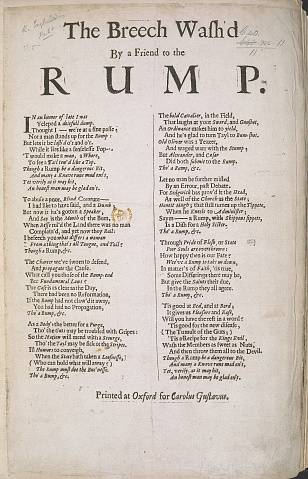 The Breech Wash'd
By a Friend to the
RUMP.
IN an humor of late I was
Ycleped a doleful dump.
Thought I — we're at a fine passe;
Not a man stands up for the Rump
But lets it be lash'd o'er and o're,
While it lies like a senseless Fop—
'T would make a man, a Whore,
To see a Tail tow'd like a Top.
Though a Rump be a dangerous Bit,
and many a Knave runs mad on't,
Yet verily as it may hit,
An honest man may be glad on't.
To abuse a poor, blind Creature—
I had like to have said, and a dumb;
But now it ha's gotten a Speaker,
And Say is the Mouth of the Bum,
When Besse rul'd the Land there was no man
Complain'd, and yet now they Rail:
I beseech you what differs a woman
From a thing that's all Tongue, and Tail?
Though a Rump, &c.
The Charter we've sworn to defend,
And propagate the Cause.
What call you those of the Rump-end
But Fundamental Laws?
The Case is as clear as the Day,
There had been no Reformation,
If the Rump had not claw'd it away,
You had had no Propagation,
Tho' a Rump, &c.
As a Body that's
Tho' the Guts may be troubled with Gripes:
So the Nation will mend with a Scourge,
Tho' the Tail may be sick of the Stripes.
Ill Humors to conveigh,
When the State hath taken a Loosenesse,
(Who can hold what will away?)
The Rump must doe the Bus'nesse.
Tho' a Rump, &c.
The bold Cavalier, in the Field,
That laughs at your Sword, and Gunshot,
An Ordinance makes him to yield,
And he's glad to turn Tayl to Bum-shot.
Old Oliver was a Teazer,
And waged war with the Stump;
But Alexander, and Cæsar
Did both submit to the Rump.
Tho' a Rump, &c.
Let no man be further misled
By an Errour, past Debate,
For Sedgwick has prov'd it the Head,
As well of the Church as the State,
Honest Hugh; that still turns up the Tippet,
When he Kneels to Administer;
Says— a Rump, with Slippets sippet,
Is a Dish for a Holy Sister.
Tho' a Rump, &c.
Through Pride of Flesh, or State
Poor Souls are overthrown:
How happy then is our Fate?
We've a Rump to take us down,
In matter's of Faith, 'tis true,
Some Differings there may be,
But give the Saints their due,
In the Rump they all agree.
Tho' a Rump, &c.
'Tis good at Bed, and at Bord;
It gives us Pleasure and Rest,
Will you have the rest in a word?
'Tis good for the new disease;
(The Tumult of the Guts;)
'Tis a Recipe for the Kings Evil,
Wash the Members as sweet as Nuts,
And then throw them all to the Devil.
Though a Rump be a dangerous Bit,
And many a Knave runs mad on't,
Yet, verily, as it may hit,
An honest man may be glad on't.
Printed at Oxford for Carolus Gustavus.